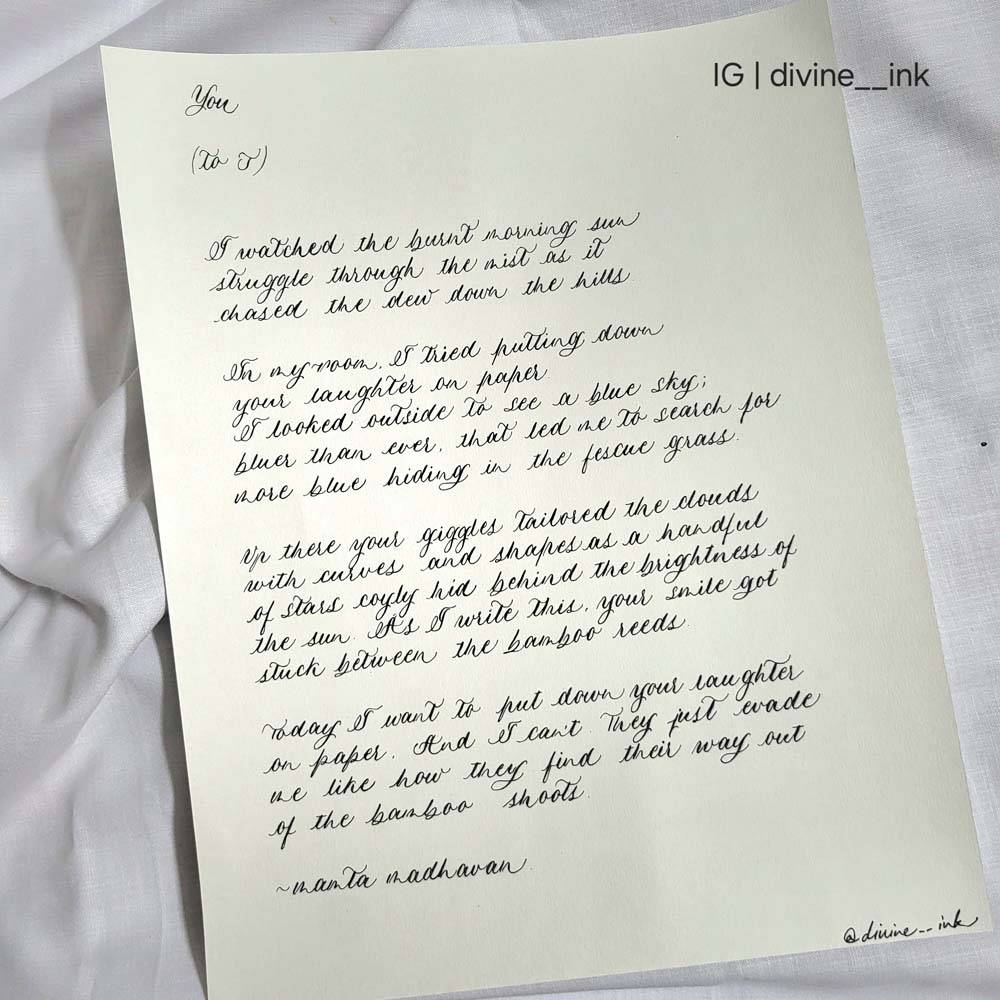 IG | divine__ink
You
(To J)
I watched the burnt morning sun
struggle through the mist as it
chased the dew down the hills.
In my room, I tried putting down
your laughter on paper.
I looked outside to see a blue sky;
bluer than ever, that led me to search for
more blue hiding in the fescue grass.
Up there your giggles tailored the clouds
with curves and shapes as a handful
of stars coyly hid behind the brightness of
the sun. As I write this, your smile got
stuck between the bamboo reeds.
Today I want to put down your laughter
on paper. And I can't. They just evade
me like how they find their way out
of the bamboo shoots.
~mamta madhavan
@divine__ink